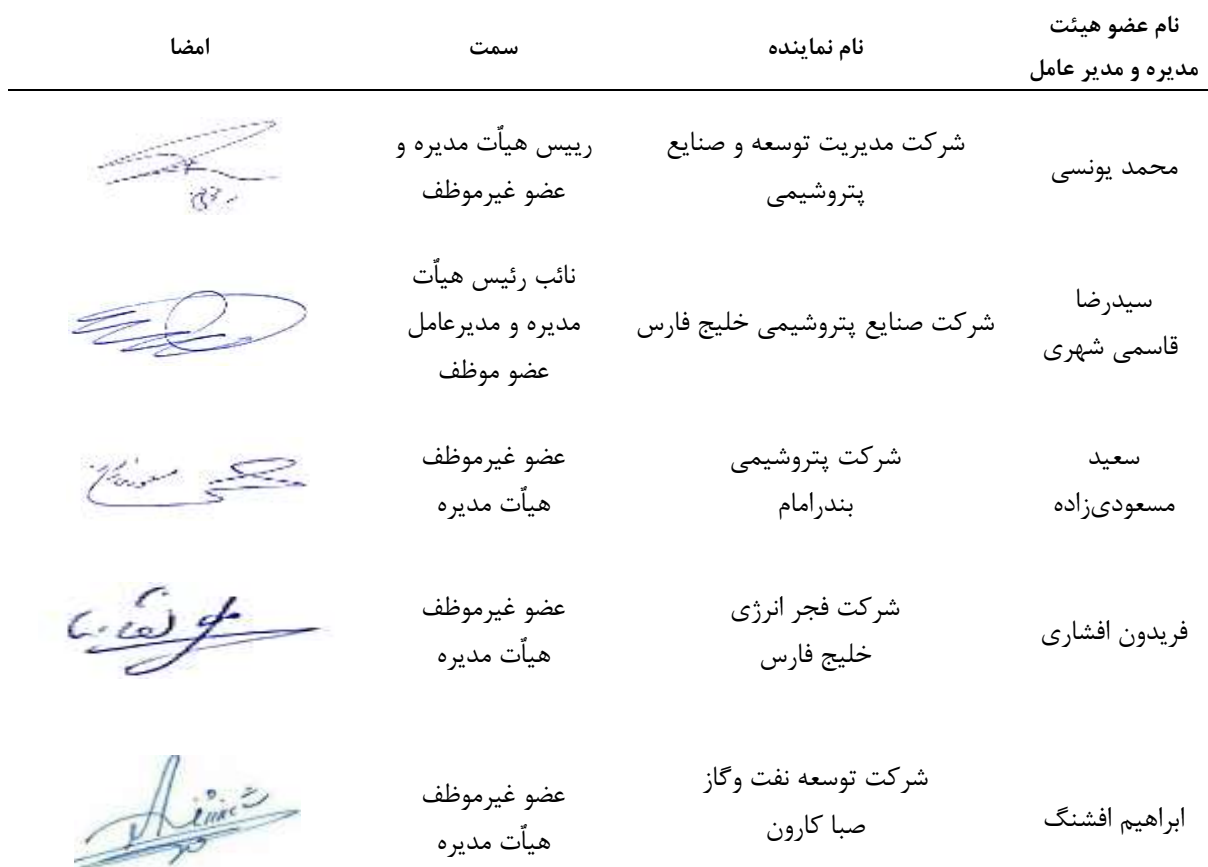 نام عضو هیئت
مدیره و مدیر عامل
نام نماینده
سمت
امضا
محمد یونسی
شرکت مدیریت توسعه و صنایع
پتروشیمی
رییس هیأت مدیره و
عضو غیرموظف
سیدرضا
قاسمی شهری
شرکت صنایع پتروشیمی خلیج فارس
نائب رئیس هیأت
مدیره و مدیرعامل
عضو موظف
سعید
مسعودی‌زاده
شرکت پتروشیمی
بندرامام
عضو غیرموظف
هیأت مدیره
فریدون افشاری
شرکت فجر انرژی
خلیج فارس
عضو غیرموظف
هیأت مدیره
ابراهیم افشنگ
شرکت توسعه نفت وگاز
صبا کارون
عضو غیرموظف
هیأت مدیره